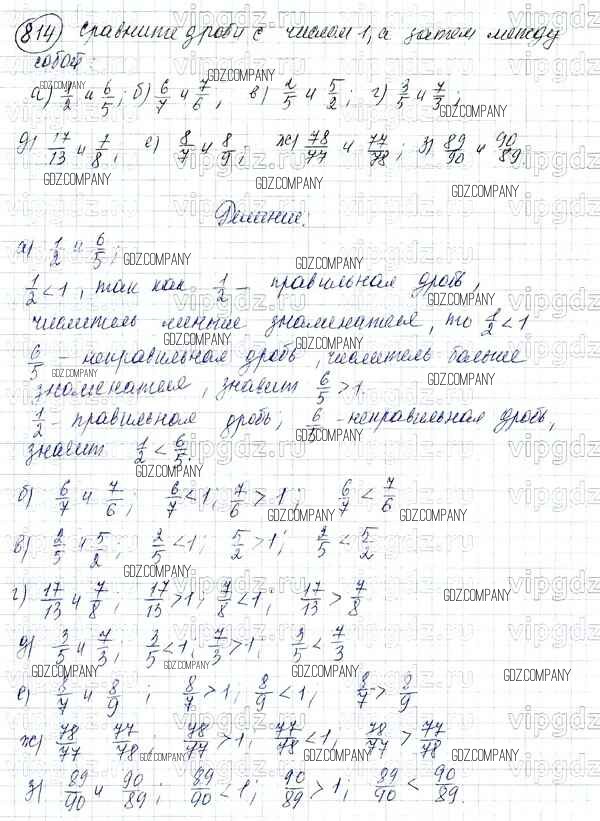 814) Сравните дроби с числом 1, а затем между
собой:
а) 1/2 и 6/5; б) 6/7 и 7/6, в) 2/5 и 5/2; г) 3/5 и 7/3;
д) 17/13 и 7/8; е) 8/7 и 8/9; ж) 78/77 и 77/78; з) 89/90 и 90/89.
Решение:
а) 1/2 и 6/5;
1/2 < 1, так как 1/2 – правильная дробь,
числитель меньше знаменателя, то 1/2 < 1
6/5 – неправильная дробь, числитель больше
знаменателя, значит 6/5 > 1.
1/2 – правильная дробь; 6/5 – неправильная дробь,
значит 1/2 < 6/5.
б) 6/7 и 7/6; 6/7 < 1; 7/6 > 1; 6/7 < 7/6
в) 2/5 и 5/2; 2/5 < 1; 5/2 > 1; 2/5 < 5/2
г) 17/13 и 7/8; 17/13 > 1; 7/8 < 1; 17/13 > 7/8
д) 3/5 и 7/3; 3/5 < 1; 7/3 > 1; 3/5 < 7/3
е) 8/7 и 8/9; 8/7 > 1; 8/9 < 1; 8/7 > 8/9
ж) 78/77 77/78; 78/77 > 1; 77/78 < 1; 78/77 > 77/78
з) 89/90 и 90/89; 89/90 < 1; 90/89 > 1; 89/90 < 90/89.
GDZ.COMPANY
vipgdz.ru